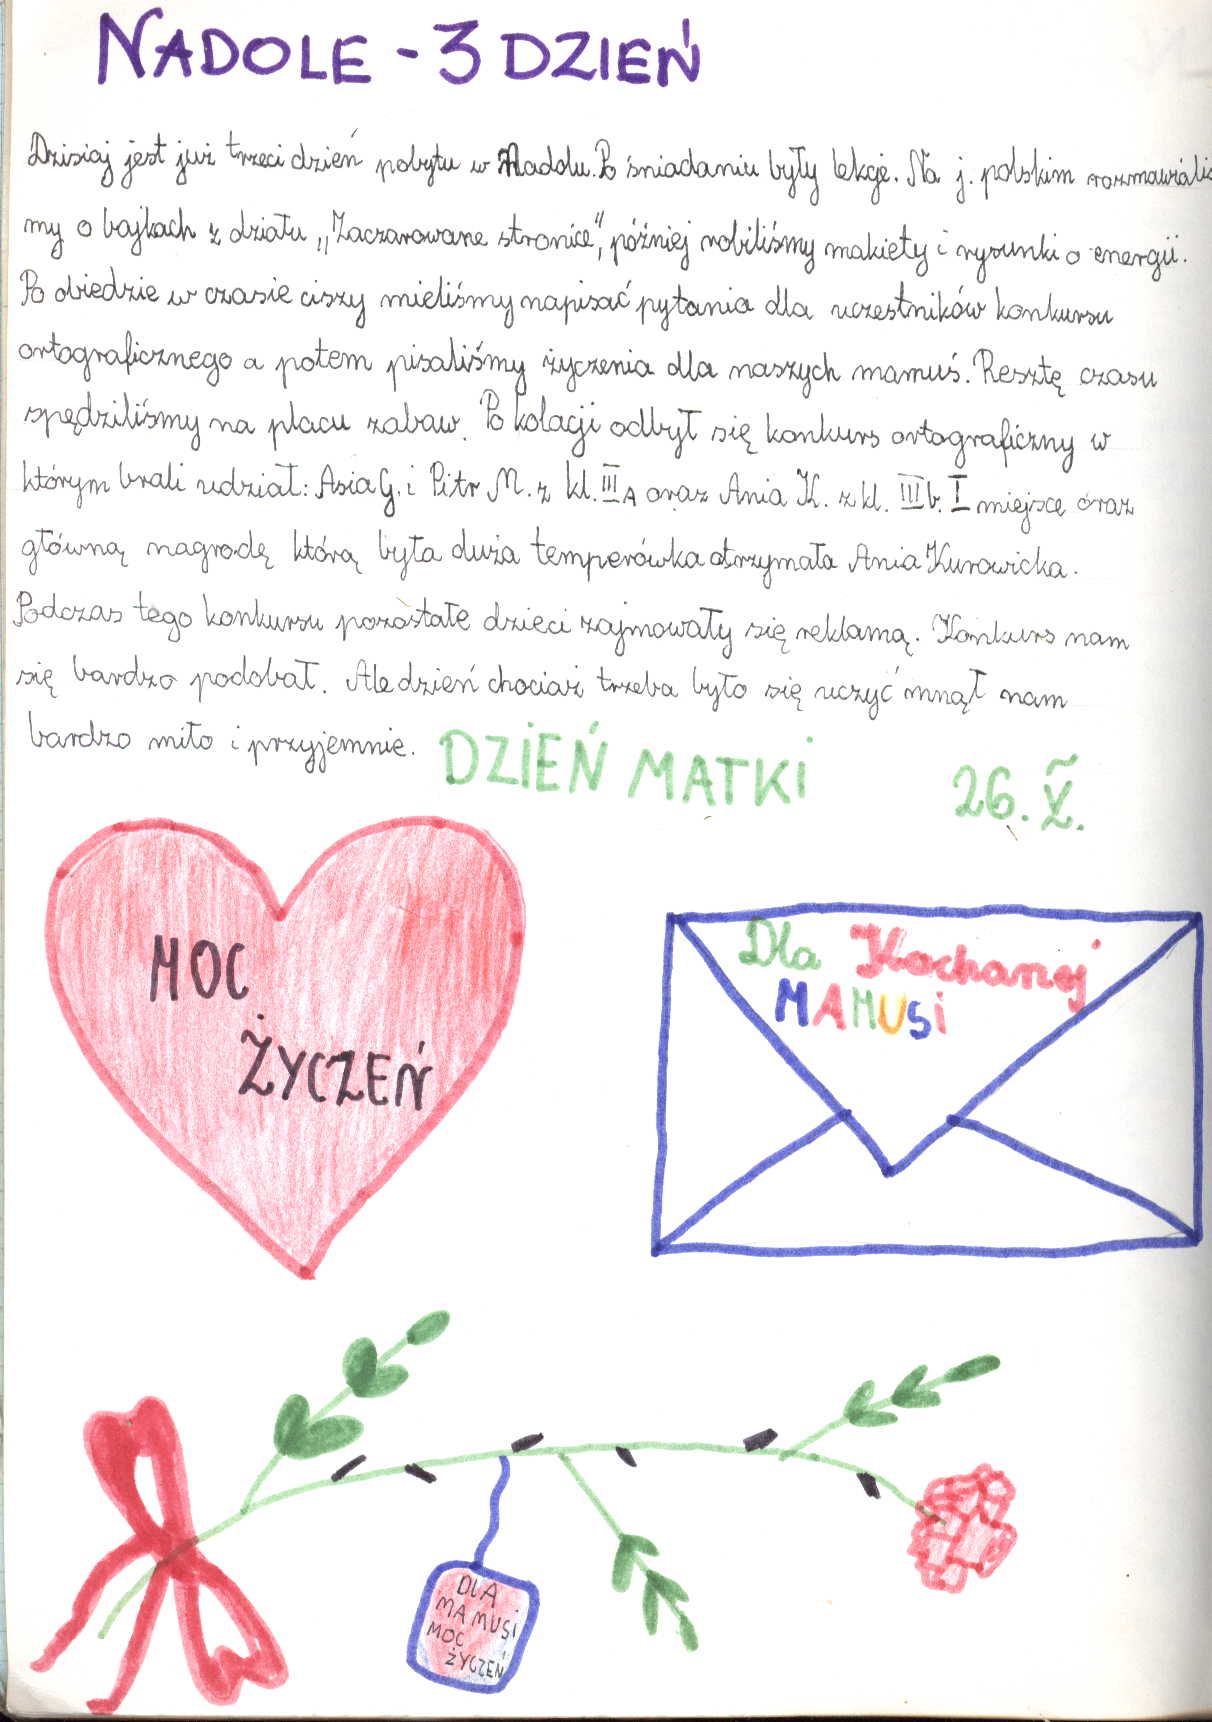 NADOLE - 3 DZIEŃ
Dzisiaj jest już trzeci dzień pobytu w Nadolu. Po śniadaniu były lekcje. Na j. polskim rozmawialiś
my o bajkach z działu „Zaczarowane stronice", później robiliśmy makiety i rysunki o energii.
Po obiedzie w czasie ciszy mieliśmy napisać pytania dla uczestników konkursu
ortograficznego a potem pisaliśmy życzenia dla naszych mamuś. Resztę czasu
spędziliśmy na placu zabaw. Po kolacji odbył się konkurs ortograficzny w
którym brali udział: Asia G. i Piotr M. z kl. III A oraz Ania K. z kl. III b. I miejsce oraz
główną nagrodę którą była duża temperówka otrzymała Ania Kurowicka.
Podczas tego konkursu pozostałe dzieci zajmowały się reklamą. Konkurs nam
się bardzo podobał. Ale dzień chociaż trzeba było się uczyć minął nam
bardzo miło i przyjemnie.
DZIEŃ MATKI 26.V.
MOC
ŻYCZEŃ
Dla Kochanej
MAMUSi
DLA
MAMUSi
MOC
ŻYCZEŃ